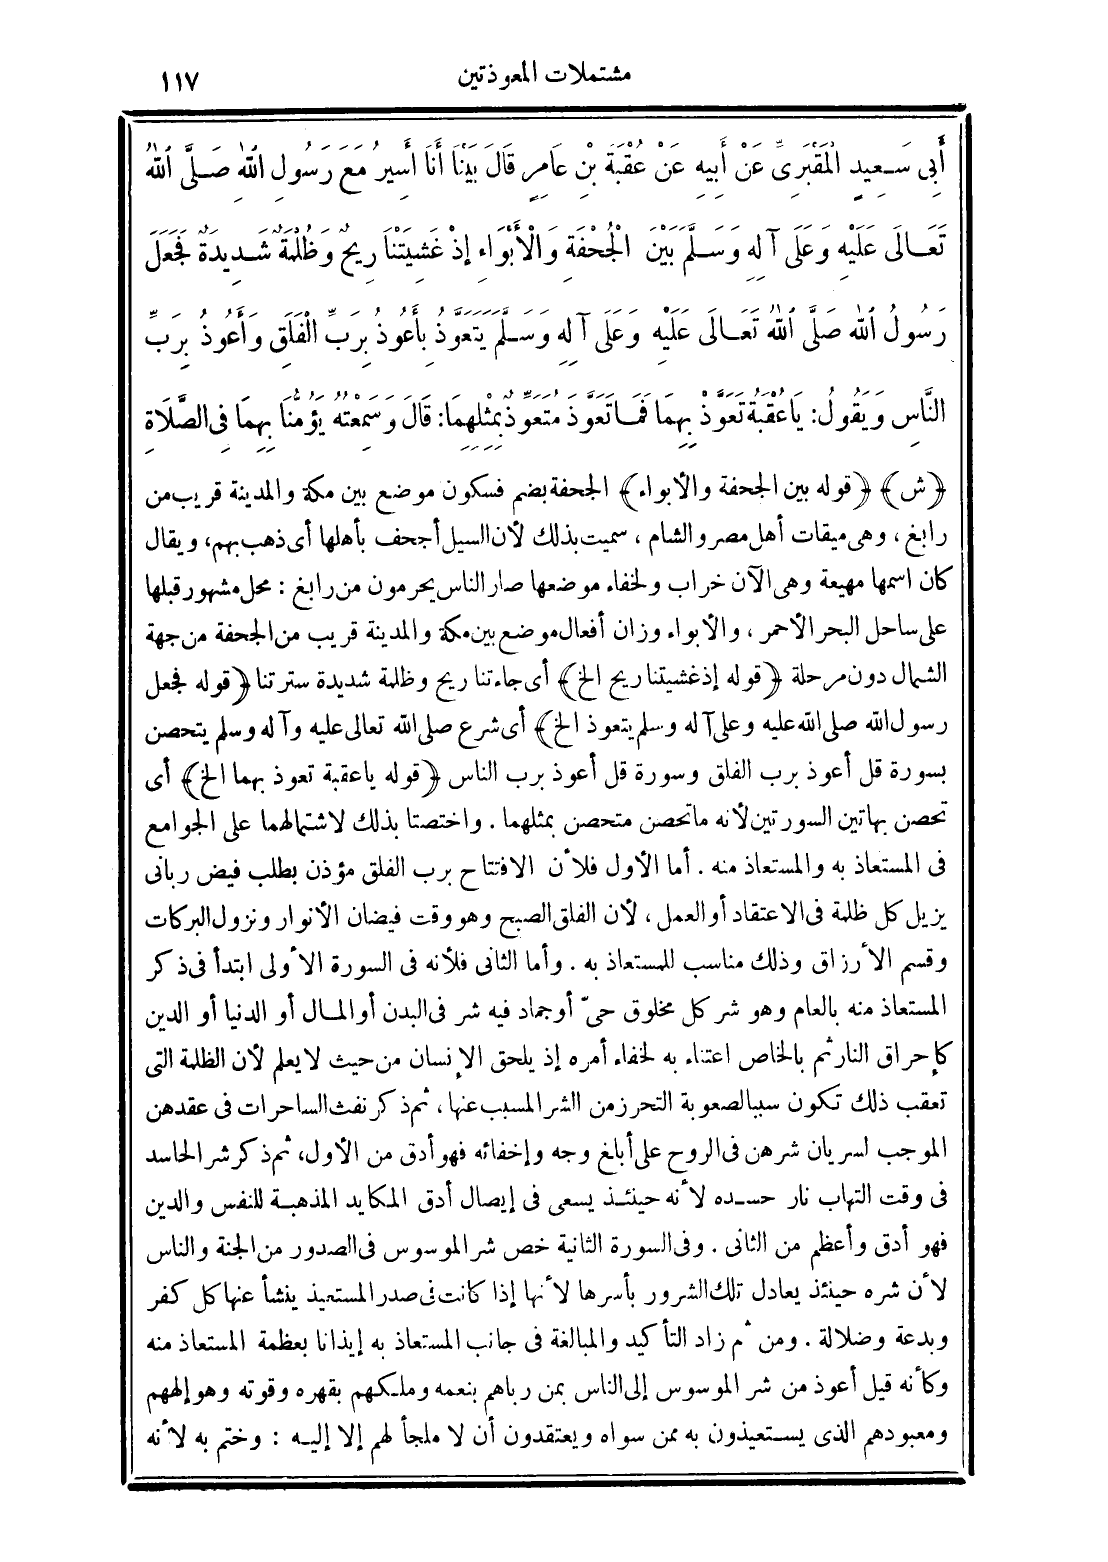 مشتملات المعوذتين ١١٧
أَبِى سَـعِيدٍ الْمَقْبَرِىِّ عَنْ أَبِيهِ عَنْ عُقْبَةَ بْنِ عَامِرٍ قَالَ بَيْنَا أَنَا أَسِيرُ مَعَ رَسُولِ اللهِ صَـلَّى اللهُ
تَعَـالَى عَلَيْهِ وَعَلَى آلِهِ وَسَـلَّمَ بَيْنَ الْجُحْفَةِ وَالْأَبْوَاءِ إِذْ غَشِيَتْنَا رِيحٌ وَظُلْمَةٌ شَـدِيدَةٌ فَجَعَلَ
رَسُولُ اللهِ صَلَّى اللهُ تَعَـالَى عَلَيْهِ وَعَلَى آلِهِ وَسَـلَّمَ يَتَعَوَّذُ بِأَعُوذُ بِرَبِّ الْفَلَقِ وَأَعُوذُ بِرَبِّ
النَّاسِ وَيَقُولُ: يَاعُقْبَةُ تَعَوَّذْ بِهِمَا فَمَا تَعَوَّذَ مُتَعَوِّذٌ بِمِثْلِهِمَا: قَالَ وَسَمِعْتُهُ يَؤُمُّنَا بِهِمَا فِى الصَّلَاةِ
﴿ش﴾ ﴿قوله بين الجحفة والأبواء﴾ الجحفة بضم فسكون موضع بين مكة والمدينة قريب من
رابغ ، وهى ميقات أهل مصر والشام ، سميت بذلك لأن السيل أجحف بأهلها أى ذهب بهم، ويقال
كان اسمها مهيعة وهى الآن خراب ولخفاء موضعها صار الناس يحرمون من رابغ : محل مشهور قبلها
على ساحل البحر الأحمر ، والأبواء وزان أفعال موضع بين مكة والمدينة قريب من الجحفة من جهة
الشمال دون مرحلة ﴿قوله إذ غشيتنا ريح الخ﴾ أى جاءتنا ريح وظلمة شديدة سترتنا ﴿قوله فجعل
رسول الله صلى الله عليه وعلى آله وسلم يتعوذ الخ﴾ أى شرع صلى الله تعالى عليه وآله وسلم يتحصن
بسورة قل أعوذ برب الفلق وسورة قل أعوذ برب الناس ﴿قوله ياعقبة تعوذ بهما الخ﴾ أى
تحصن بهاتين السورتين لأنه ماتحصن متحصن بمثلهما . واختصتا بذلك لاشتمالهما على الجوامع
فى المستعاذ به والمستعاذ منه . أما الأول فلأن الافتتاح برب الفلق مؤذن بطلب فيض ربانى
يزيل كل ظلمة فى الاعتقاد أو العمل ، لأن الفلق الصبح وهو وقت فيضان الأنوار ونزول البركات
وقسم الأرزاق وذلك مناسب للمستعاذ به . وأما الثانى فلأنه فى السورة الأولى ابتدأ فى ذكر
المستعاذ منه بالعام وهو شر كل مخلوق حىّ أو جماد فيه شر فى البدن أو المـال أو الدنيا أو الدين
كإحراق النار ثم بالخاص اعتناء به لخفاء أمره إذ يلحق الإنسان من حيث لايعلم لأن الظلمة التى
تعقب ذلك تكون سببا لصعوبة التحرز من الشر المسبب عنها ، ثم ذكر نفث الساحرات فى عقدهن
الموجب لسريان شرهن فى الروح على أبلغ وجه وإخفائه فهو أدق من الأول، ثم ذكر شر الحاسد
فى وقت التهاب نار حسـده لأنه حينئـذ يسعى فى إيصال أدق المكايد المذهبـة للنفس والدين
فهو أدق وأعظم من الثانى . وفى السورة الثانية خص شر الموسوس فى الصدور من الجنة والناس
لأن شره حينئذ يعادل تلك الشرور بأسرها لأنها إذا كانت فى صدر المستعيذ ينشأ عنها كل كفر
وبدعة وضلالة . ومن ثم زاد التأكيد والمبالغة فى جانب المستعاذ به إيذانا بعظمة المستعاذ منه
وكأنه قيل أعوذ من شر الموسوس إلى الناس بمن رباهم بنعمه وملـكهم بقهره وقوته وهو إلههم
ومعبودهم الذى يسـتعيذون به ممن سواه ويعتقدون أن لا ملجأ لهم إلا إليـه : وختم به لأنه